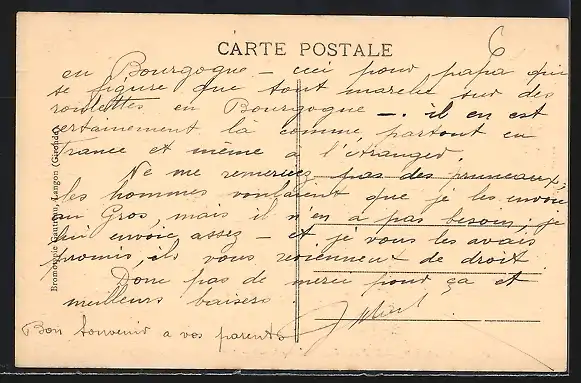 CARTE POSTALE
6
en Bourgogne – ceci pour papa qui
se figure que tout marche sur des
roulettes en Bourgogne –. il en est
certainement là comme partout en
France et même à l'étranger.
Ne me remerciez pas des pruneaux,
les hommes voulaient que je les envoie
au Gros, mais il n'en a pas besoin; je
lui envoie assez – et je vous les avais
promis, ils vous reviennent de droit
Donc pas de merci pour ça et
meilleurs baisers
Bon souvenir a vos parents.
Bromotypie Gautreau, Langon (Gironde)